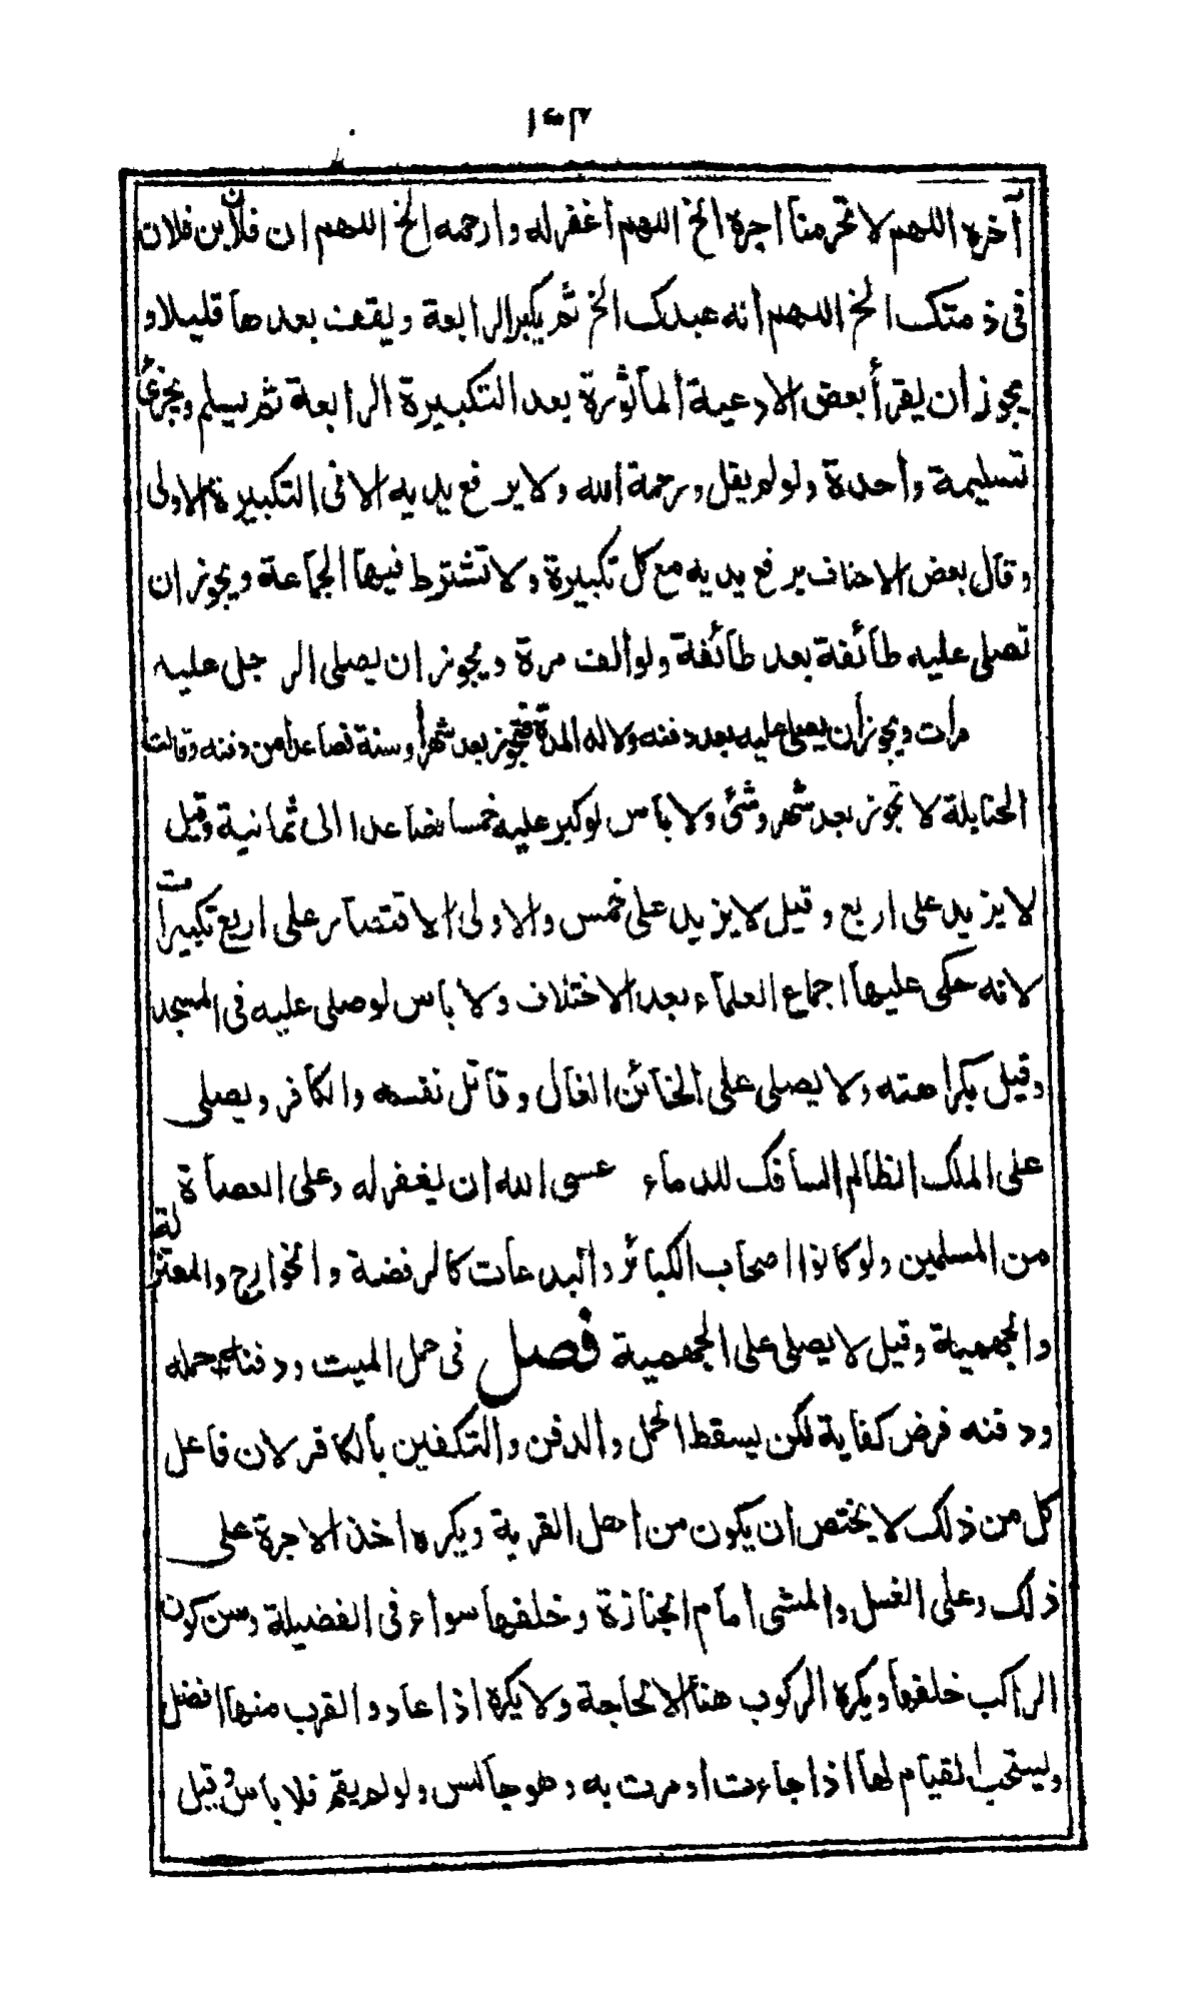 ١٠٢
آخره اللهم لا تحرمنا اجره الخ اللهم اغفر له وارحمه الخ اللهم ان فلان بن فلان
فى ذمتك الخ اللهم انه عبدك الخ ثم يكبر الرابعة ويقف بعدها قليلا و
يجوز ان يقرأ بعض الادعية المأثورة بعد التكبيرة الرابعة ثم يسلم ويجزئ
تسليمة واحدة ولو لم يقل ورحمة الله ولا يرفع يديه الا فى التكبيرة الاولى
وقال بعض الاحناف يرفع يديه مع كل تكبيرة ولا تشترط فيها الجماعة ويجوز ان
تصلى عليه طائفة بعد طائفة ولو الف مرة ويجوز ان يصلى الرجل عليه
مرات ويجوز ان يصلى عليه بعد دفنه ولا له المدة فتجوز بعد شهر أو سنة فصاعدا من دفنه وقالت
الحنابلة لا تجوز بعد شهر وشئ ولا بأس لو كبر عليه خمسا فصاعدا الى ثمانية وقيل
لا يزيد على اربع وقيل لا يزيد على خمس والاولى الاقتصار على اربع تكبيرات
لانه حكى عليها اجماع العلماء بعد الاختلاف ولا بأس لو صلى عليه فى المسجد
وقيل بكراهته ولا يصلى على الخائن الغال وقاتل نفسه والكافر ويصلى
على الملك الظالم السافك للدماء عسى الله ان يغفر له وعلى العصاة
من المسلمين ولو كانوا اصحاب الكبائر والبدعات كالرفضة والخوارج والمعتزلة
والجهمية وقيل لا يصلى على الجهمية فصل فى حمل الميت ودفنه حمله
ودفنه فرض كفاية لكن يسقط الحمل والدفن والتكفين بالكافر لان فاعل
كل من ذلك لا يختص ان يكون من اهل القربة ويكره اخذ الاجرة على
ذلك وعلى الغسل والمشى امام الجنازة وخلفها سواء فى الفضيلة وسن كون
الراكب خلفها ويكره الركوب هنا الا لحاجة ولا يكره اذا عاد والقرب منها افضل
ويستحب القيام لها اذا جاءت او مرت به وهو جالس ولو لم يقم فلا بأس وقيل